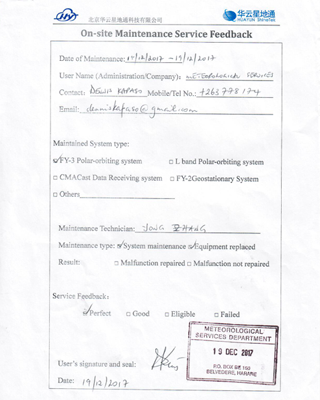 北京华云星地通科技有限公司
华云星地通
HUAYUN SHINETEK
On-site Maintenance Service Feedback
Date of Maintenance: 17/12/2017 - 19/12/2017
User Name (Administration/Company): METEOROLOGICAL SERVICES
Contact: DENNIS KAPASO Mobile/Tel No.: +2637781
Email: denniskapaso@gmail.com
Maintained System type:
☑FY-3 Polar-orbiting system □ L band Polar-orbiting system
□ CMACast Data Receiving system □ FY-2Geostationary System
□ Others
Maintenance Technician: ZHANG
Maintenance type: ☑System maintenance ☑Equipment replaced
Result: □ Malfunction repaired □ Malfunction not repaired
Service Feedback:
☑Perfect □ Good □ Eligible □ Failed
METEOROLOGICAL
SERVICES DEPARTMENT
19 DEC 2017
P.O. BOX BE 150
BELVEDERE, HARARE
User's signature and seal:
Date: 19/12/2017